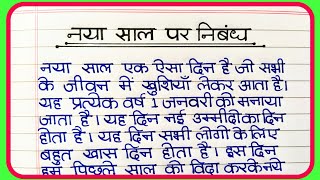 नया साल पर निबंध
नया साल एक ऐसा दिन है जो सभी
के जीवन में खुशियाँ लेकर आता है।
यह प्रत्येक वर्ष 1 जनवरी को मनाया
जाता है। यह दिन नई उम्मीदो का दिन
होता है। यह दिन सभी लोगों के लिए
बहुत खास दिन होता है। इस दिन
हम पिछले साल को विदा करके नये